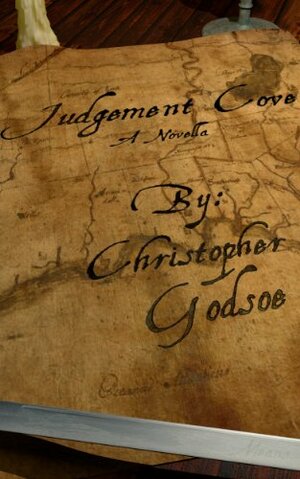 Judgement Cove
A Novella
By:
Christopher
Godsoe